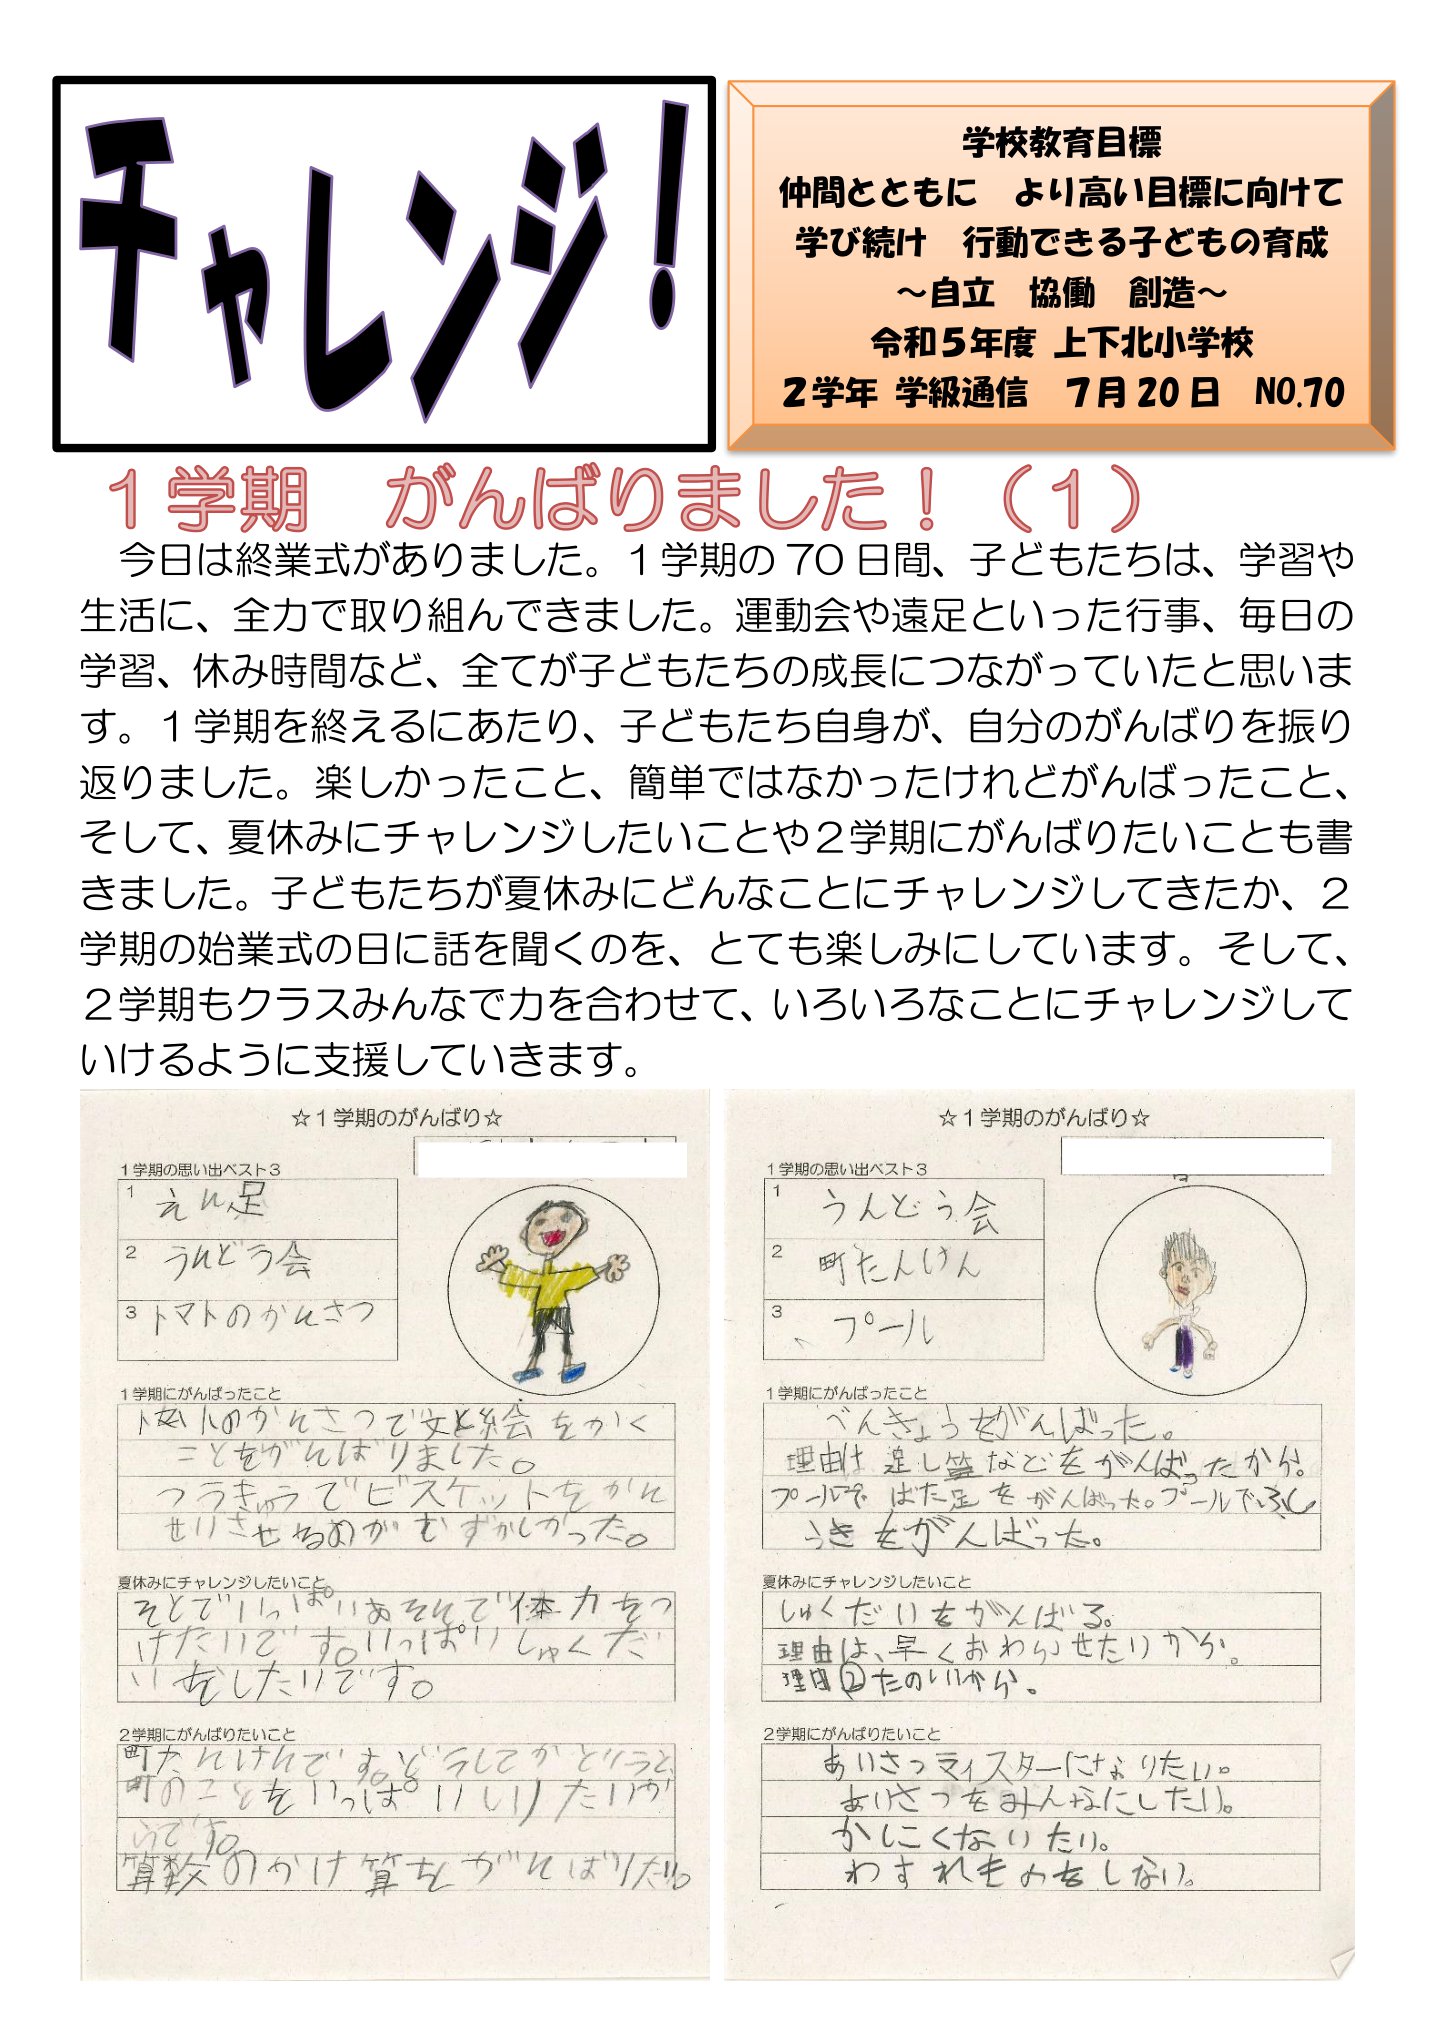 チャレンジ！
学校教育目標
仲間とともに　より高い目標に向けて
学び続け　行動できる子どもの育成
～自立　協働　創造～
令和５年度 上下北小学校
２学年 学級通信　７月 20 日　NO.70
１学期　がんばりました！（１）
今日は終業式がありました。１学期の 70 日間、子どもたちは、学習や
生活に、全力で取り組んできました。運動会や遠足といった行事、毎日の
学習、休み時間など、全てが子どもたちの成長につながっていたと思いま
す。１学期を終えるにあたり、子どもたち自身が、自分のがんばりを振り
返りました。楽しかったこと、簡単ではなかったけれどがんばったこと、
そして、夏休みにチャレンジしたいことや２学期にがんばりたいことも書
きました。子どもたちが夏休みにどんなことにチャレンジしてきたか、２
学期の始業式の日に話を聞くのを、とても楽しみにしています。そして、
２学期もクラスみんなで力を合わせて、いろいろなことにチャレンジして
いけるように支援していきます。
☆１学期のがんばり☆
１学期の思い出ベスト３
1 えん足
2 うんどう会
3 トマトのかんさつ
１学期にがんばったこと
のかんさつで文と絵をかく
ことをがんばりました。
つうきゅうでビスケットをかん
せいさせるのがむずかしかった。
夏休みにチャレンジしたいこと
そとでいっぱいあそんで体力をつ
けたいです。いっぱいしゅくだ
いをしたいです。
２学期にがんばりたいこと
町たんけんです。どうしてかというと、
町のことをいっぱいしりたいか
らです。
算数のかけ算をがんばりたい。
☆１学期のがんばり☆
１学期の思い出ベスト３
1 うんどう会
2 町たんけん
3 プール
１学期にがんばったこと
べんきょうをがんばった。
理由は足し算などをがんばったから。
プールで ばた足をがんばった。プールでふし
うきをがんばった。
夏休みにチャレンジしたいこと
しゅくだいをがんばる。
理由は、早くおわらせたいから。
理由②たのしいから。
２学期にがんばりたいこと
あいさつマイスターになりたい。
あいさつをみんなにしたい。
かしこくなりたい。
わすれものをしない。